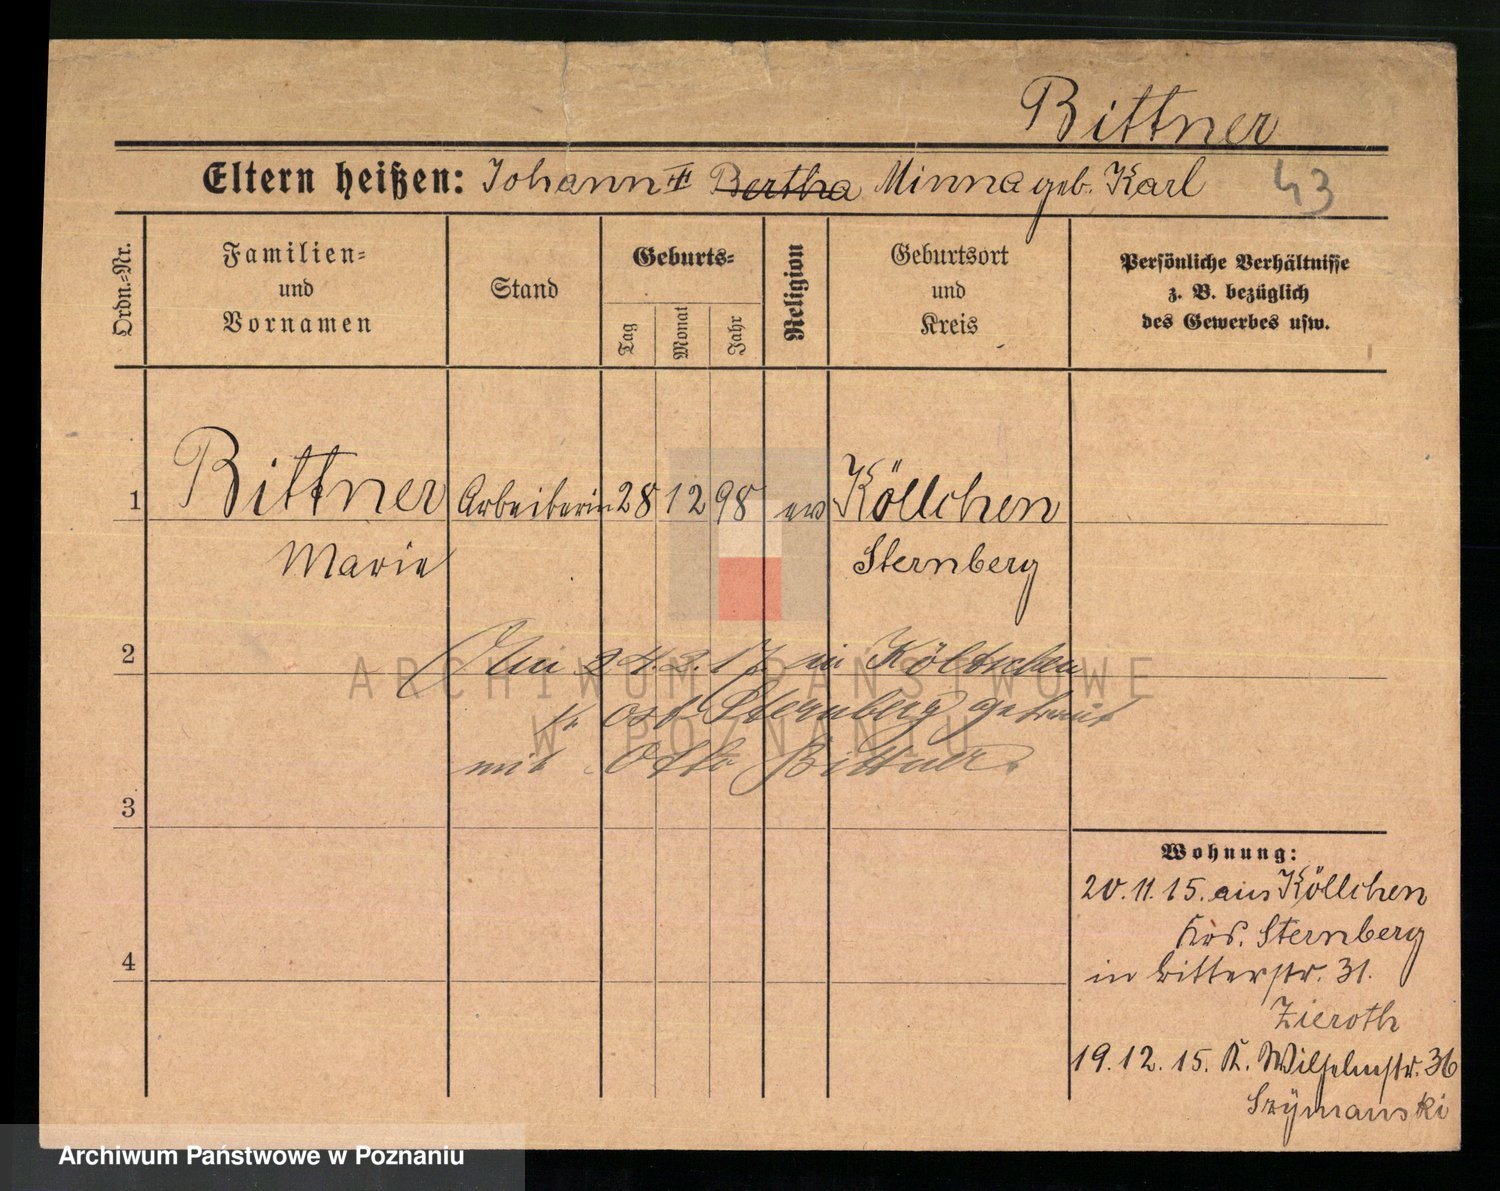 Bittner
Eltern heißen: Johann II Bertha Minna geb. Karl 43
Ordn.-Nr.
Familien-
und
Vornamen
Stand
Geburts-
Tag
Monat
Jahr
Religion
Geburtsort
und
Kreis
Persönliche Verhältnisse
z. B. bezüglich
des Gewerbes usw.
1 Bittner Arbeiterin 28 12 98 ev Költschen
Marie Sternberg
2
Am 24.3.17 in Költschen
Kr. ost Sternberg getraut
mit Otto Bittner.
3
4
Wohnung:
20.11.15. aus Költschen
Sternberg
in Ritterstr. 31.
Zieroth
19.12.15. K. Wilhelmstr. 36
Szymanski
ARCHIWUM PAŃSTWOWE
W POZNANIU
Archiwum Państwowe w Poznaniu